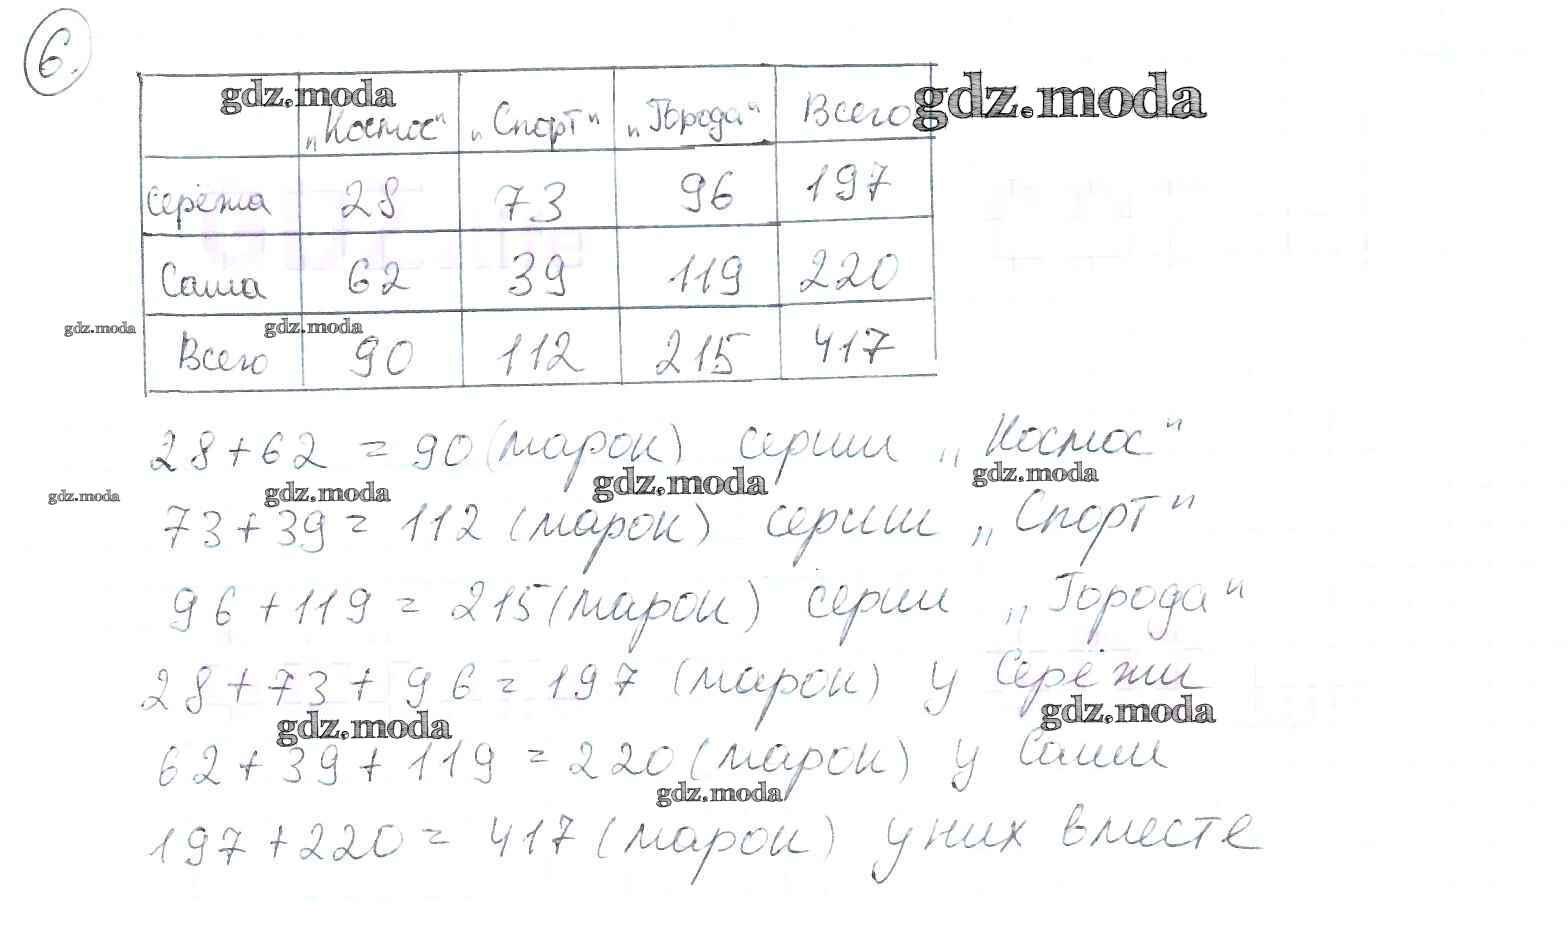 6.
gdz.moda
„Космос“ „Спорт“ „Города“ Всего gdz.moda
Серёжа 28 73 96 197
Саша 62 39 119 220
gdz.moda gdz.moda
Всего 90 112 215 417
28 + 62 = 90 (марок) серии „Космос“
gdz.moda gdz.moda gdz.moda gdz.moda
73 + 39 = 112 (марок) серии „Спорт“
96 + 119 = 215 (марок) серии „Города“
28 + 73 + 96 = 197 (марок) у Серёжи
gdz.moda gdz.moda
62 + 39 + 119 = 220 (марок) у Саши
gdz.moda
197 + 220 = 417 (марок) у них вместе